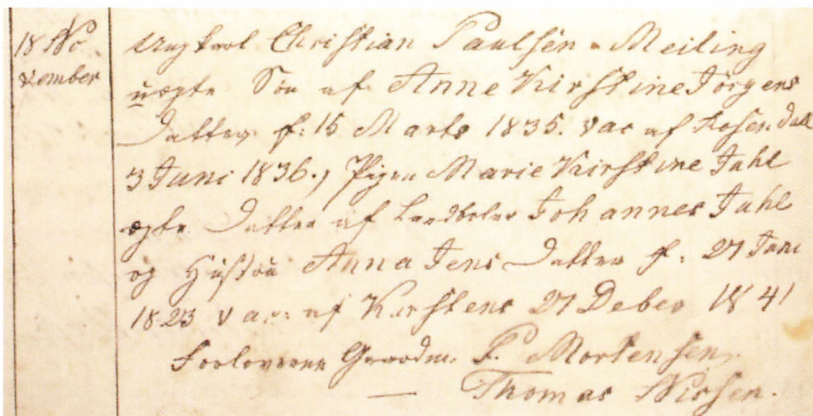 18 No
vember
Ungkarl Christian Paulsen Meiling
uægte Søn af Anne Kirstine Jörgens
Datter f: 15 Marts 1835. vac af Rosendal
3 Juni 1836., Pigen Marie Kirstine Juhl
ægte Datter af Landboler Johannes Juhl
og Hustru Anna Jens Datter f: 27 Juni
1823 vac: af Karstens 27 Deber 1841
Forloverne Gaardm. P. Mortensen,
— Thomas Nissen.